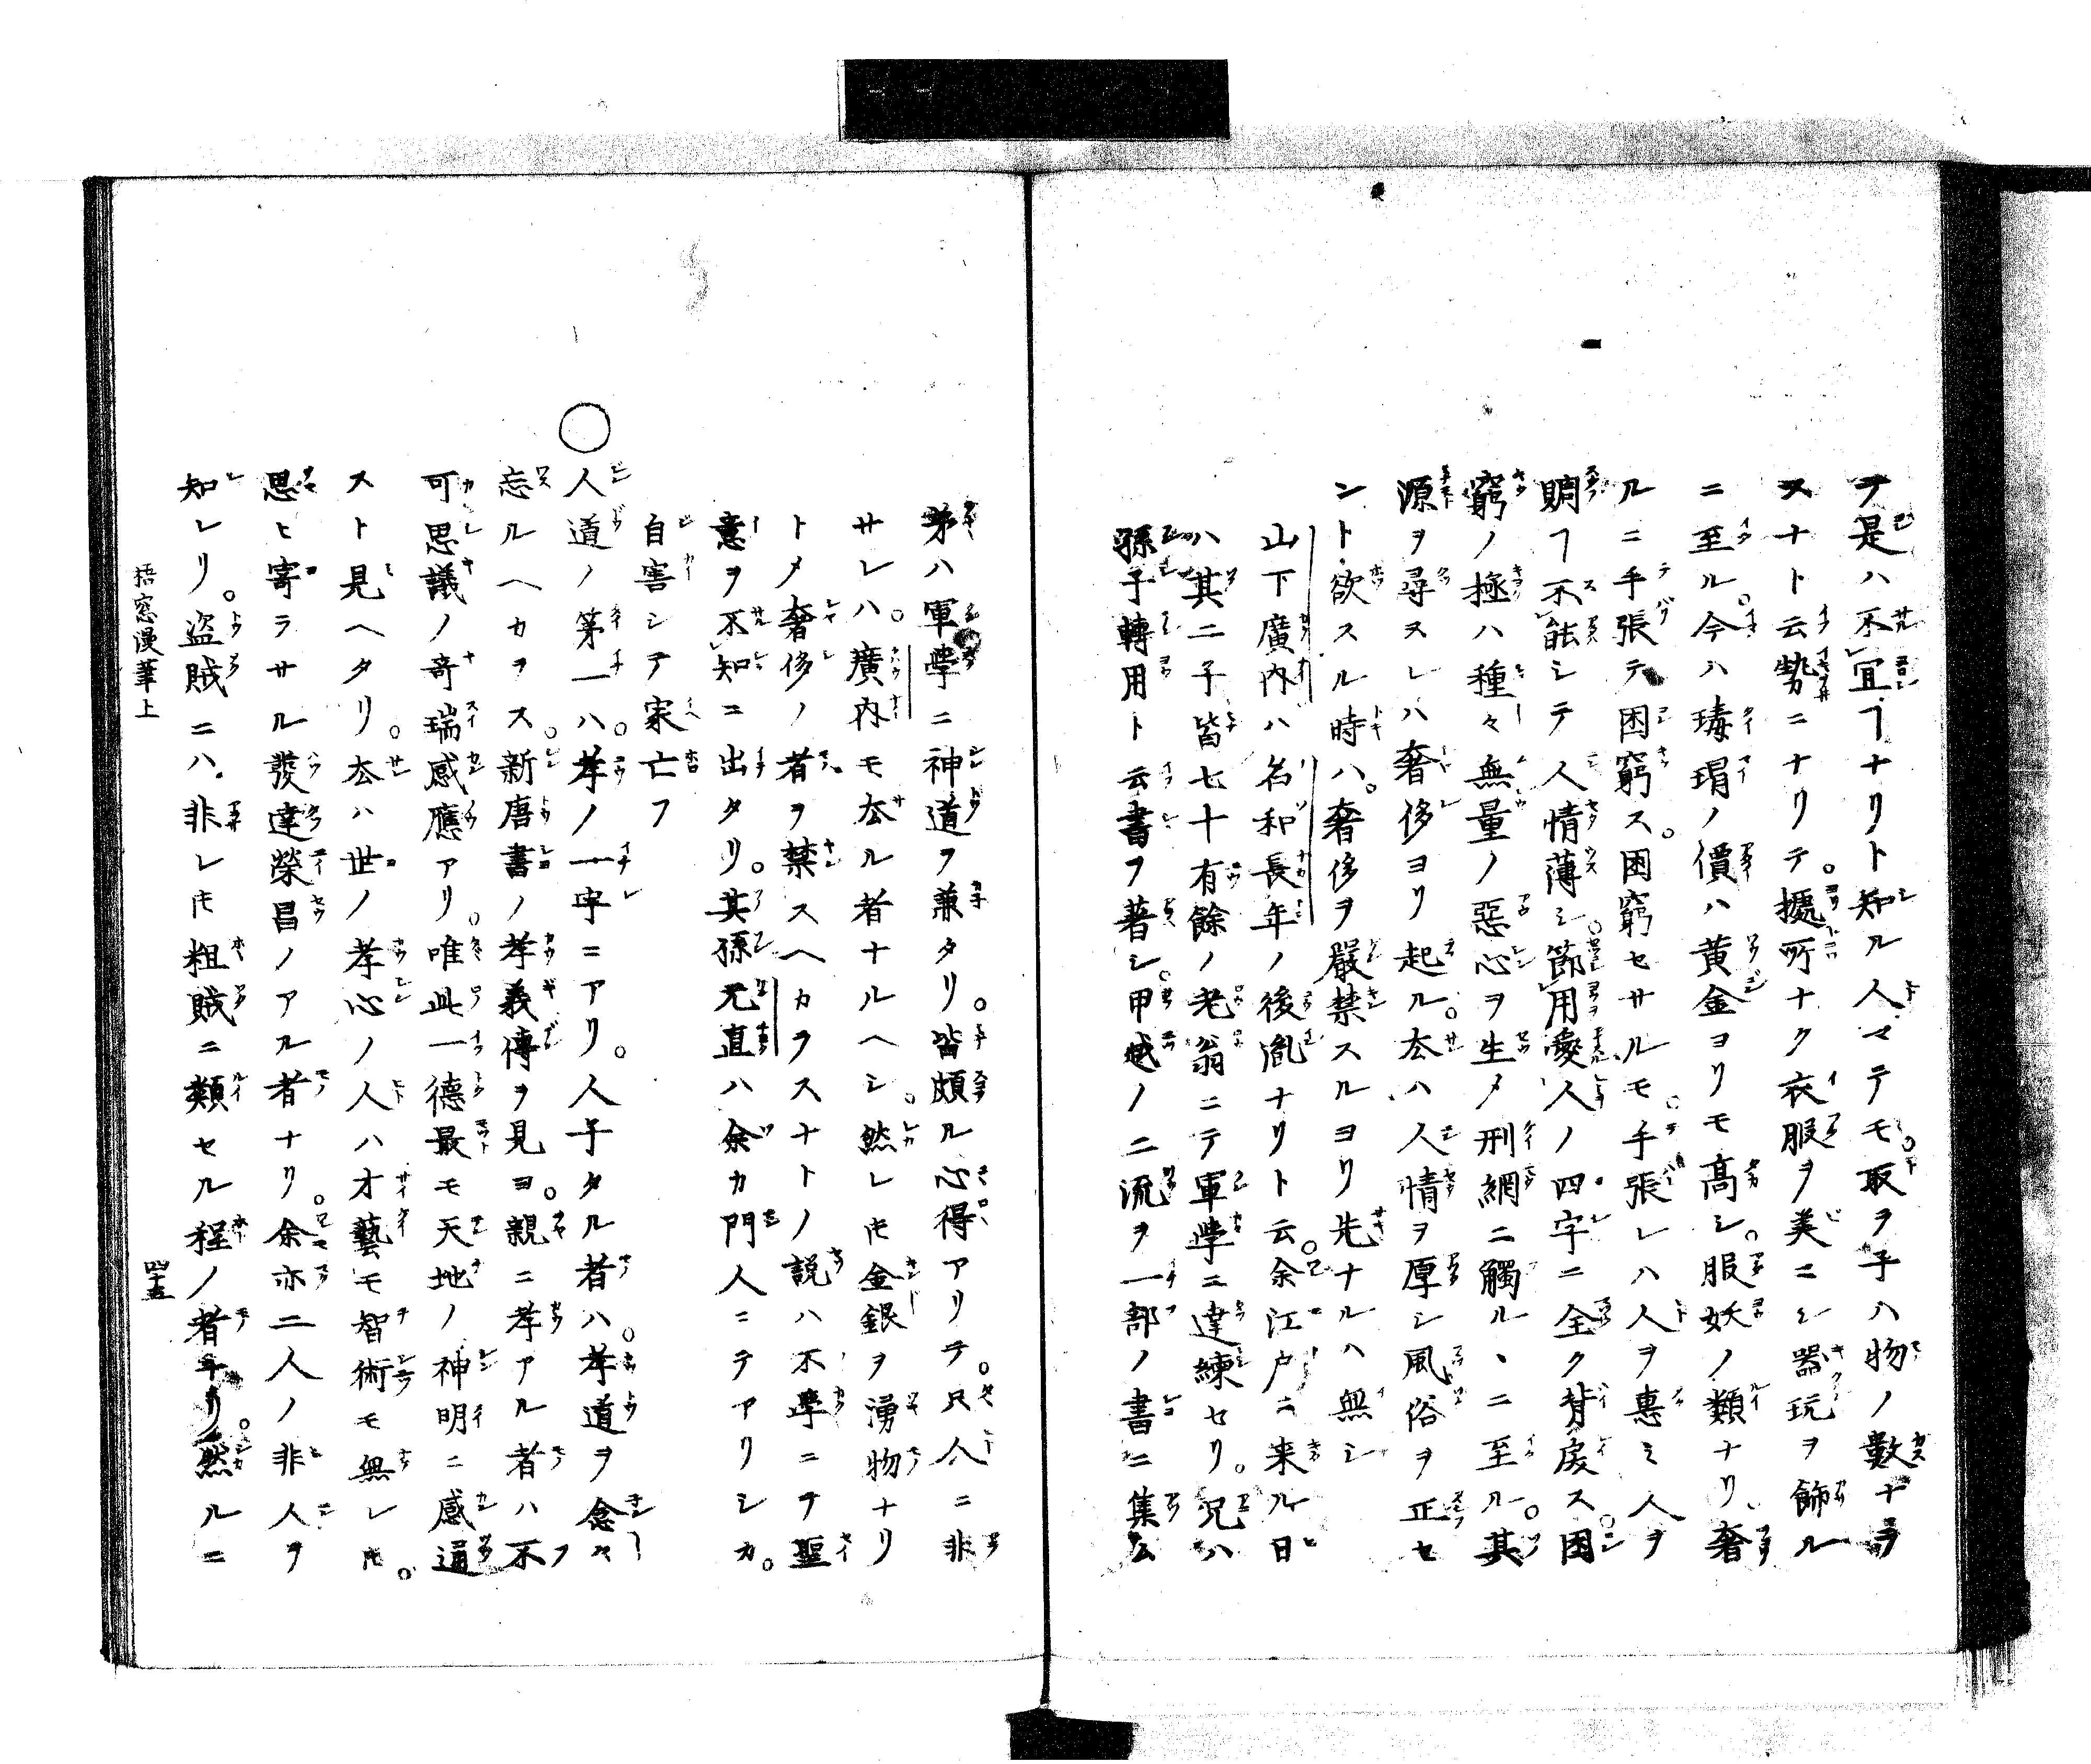 テ是ハ不宜ヿナリト知ル人マテモ。取ヲ子ハ物ノ數ナラ
スナト云勢ニナリテ。據所ナク衣服ヲ美ニシ器玩ヲ飾ル
ニ至ル。今ハ瑇瑁ノ價ハ黄金ヨリモ髙シ。服妖ノ類ナリ。奢
ルニ手張テ困窮ス。困窮セサルモ。手張レハ人ヲ惠ミ人ヲ
賙フヿ不能シテ人情薄シ。節用愛人ノ四字ニ全ク背戻ス。困
窮ノ極ハ種々無量ノ惡心ヲ生メ刑網ニ觸ルヽニ至ル。其
源ヲ尋ヌレハ奢侈ヨリ起ル。厺ハ人情ヲ厚シ風俗ヲ正セ
ント欲スル時ハ。奢侈ヲ嚴禁スルヨリ先ナルハ無シ
山下廣内ハ名和長年ノ後胤ナリト云。余江戸ニ来ル日
ハ其二子皆七十有餘ノ老翁ニテ軍學ニ達練セリ。兄ハ
孫子轉用ト云書ヲ著シ。甲越ノ二流ヲ一部ノ書ニ集ム
弟ハ軍學ニ神道ヲ兼タリ。皆頗ル心得アリテ。只人ニ非
サレハ。廣内モ厺ル者ナルヘシ。然レ𪜈金銀ヲ湧物ナリ
トメ奢侈ノ者ヲ禁スヘカラスナトノ説ハ不學ニテ聖
意ヲ不知ニ出タリ。其孫元直ハ余カ門人ニテアリシカ。
自害シテ家亡フ
〇人道ノ第一ハ。孝ノ一字ニアリ。人子タル者ハ。孝道ヲ念々
忘ルヘカラス。新唐書ノ孝義傳ヲ見ヨ。親ニ孝アル者ハ不
可思議ノ竒瑞感應アリ。唯此一德最モ天地ノ神明ニ感通
スト見ヘタリ。厺ハ世ノ孝心ノ人ハ才藝モ智術モ無レ𪜈。
思ヒ寄ラサル發達榮昌ノアル者ナリ。余亦二人ノ非人ヲ
知レリ。盗賊ニハ。非レ𪜈粗賊ニ類セル程ノ者ナリ。然ルニ
梧窓漫筆上
四十五